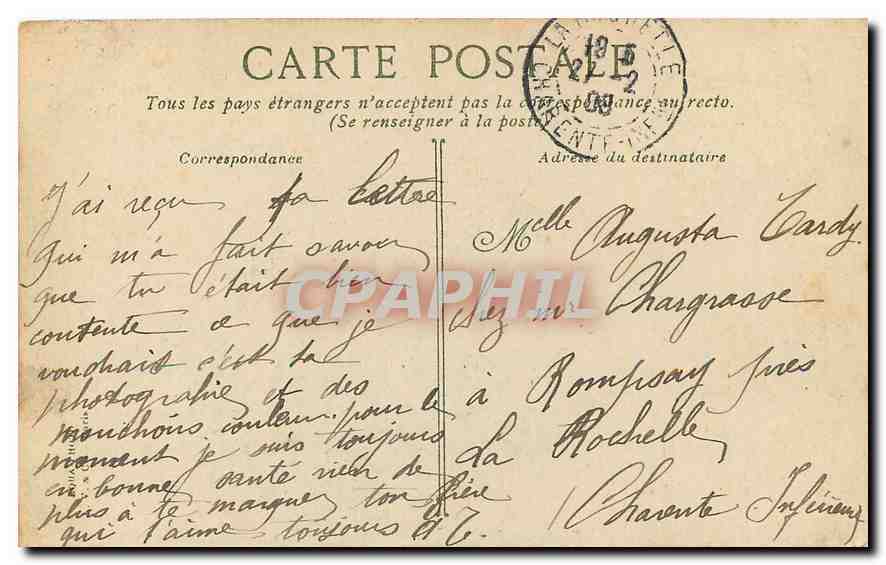 CARTE POSTALE
Tous les pays étrangers n'acceptent pas la correspondance au recto.
(Se renseigner à la poste)
Correspondance
J'ai reçu ta lettre
qui m'a fait savoir
que tu était bien
contente ce que je
voudrait c'est ta
photografie et des
mouchoirs couleur. pour le
moment je suis toujours
en bonne santé rien de
plus à te marquer ton frère
qui t'aime toujours
Adresse du destinataire
Melle Augusta Tardy
chez mr Chargrasse
à Rompsay près
La Rochelle
Charente Inférieure
LA ROCHELLE
18 5
27 -2
09
CHARENTE-INFRE
CPAPHIL